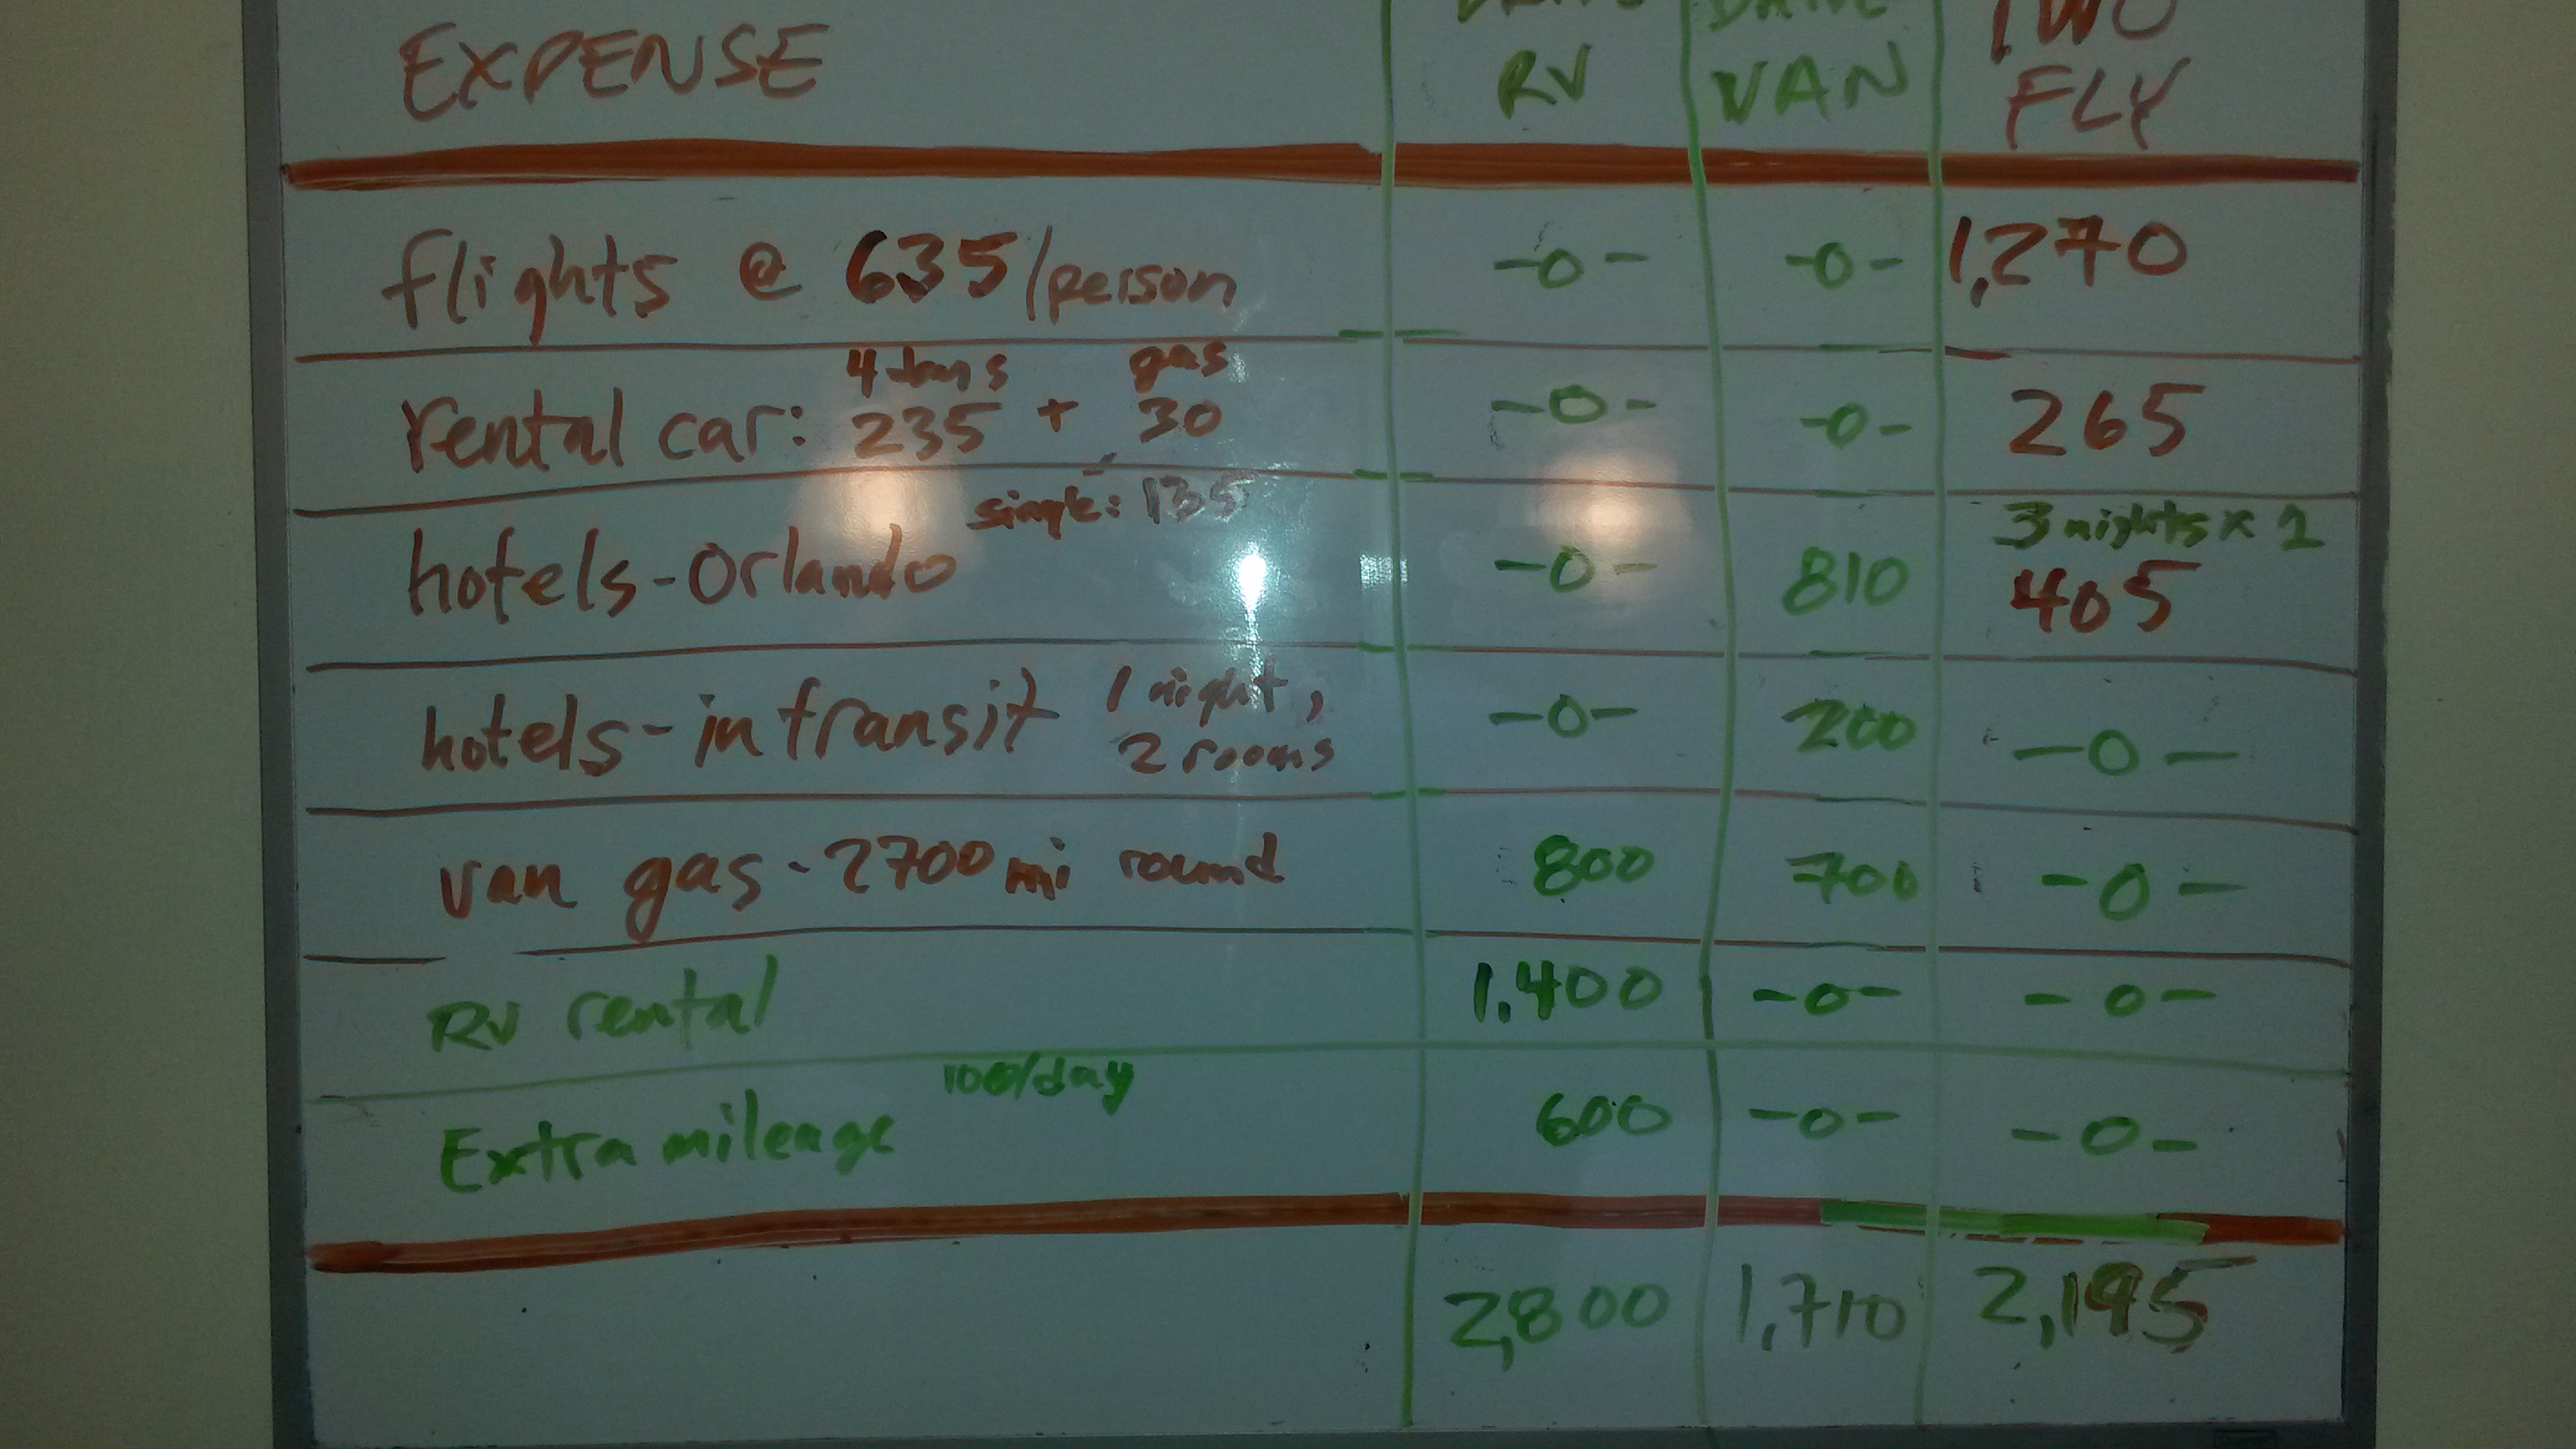 EXPENSE RV VAN TWO FLY
flights @ 635/person -0- -0- 1,270
4 days gas
rental car: 235 + 30 -0- -0- 265
single: 135 3 nights x 1
hotels-Orlando -0- 810 405
hotels-in transit 1 night, 2 rooms -0- 200 -0-
van gas - 2700 mi round 800 700 -0-
RV rental 1,400 -0- -0-
100/day
Extra mileage 600 -0- -0-
2,800 1,710